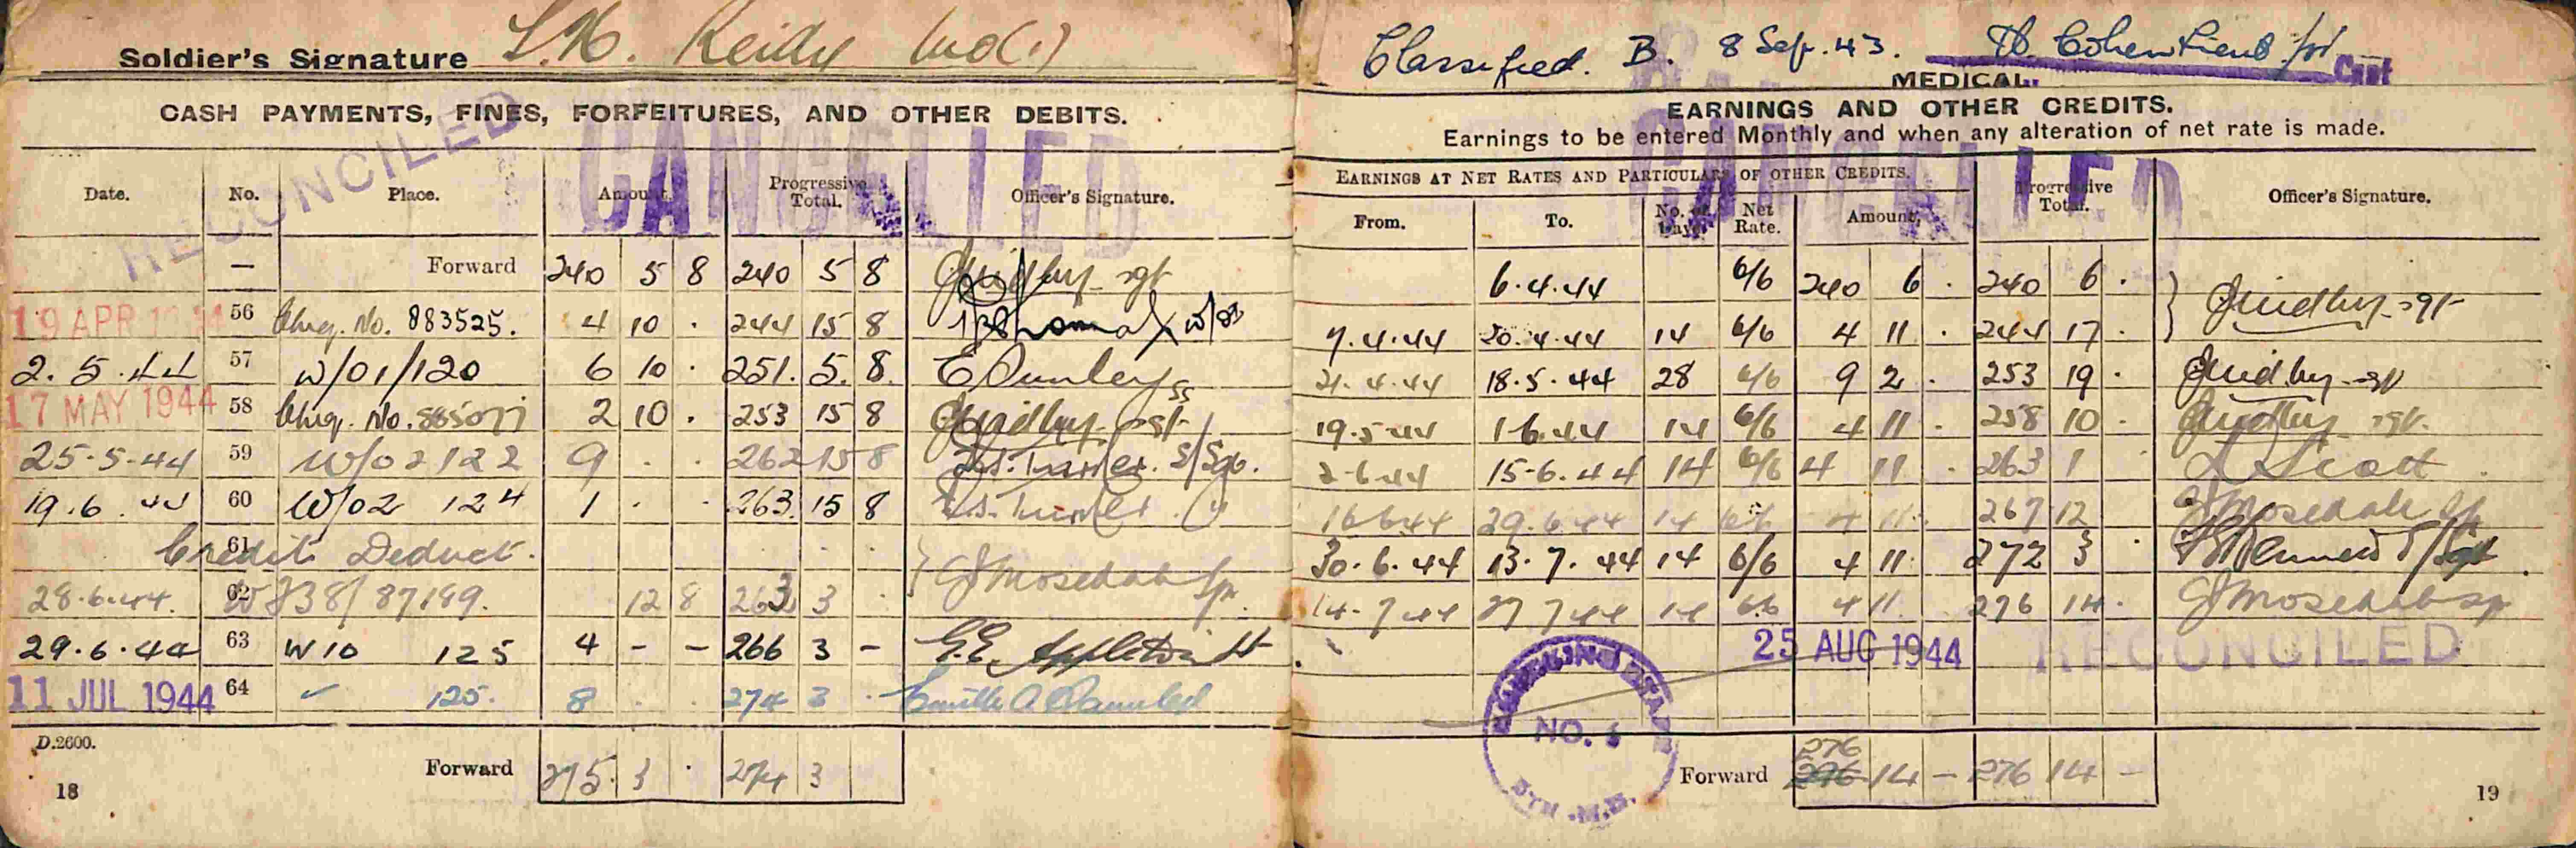 Soldier's Signature L.K. Reidy WO(1)
CASH PAYMENTS, FINES, FORFEITURES, AND OTHER DEBITS.
RECONCILED
CANCELLED
Date. No. Place. Amount. Progressive Total. Officer's Signature.
— Forward 240 5 8 240 5 8 sgt
19 APR 56 Chq. No. 883525. 4 10 . 244 15 8
2.5.44 57 W/01/120 6 10 . 251. 5. 8.
17 MAY 1944 58 Chq. No. 2 10 . 253 15 8
25-5-44 59 W/02122 9 . . 262 15 8 S/Sgt.
19.6.44 60 W/02 124 1 . . 263 15 8
61 Credit Deduct.
28.6.44. 62 W838/87189. 12 8 263 3 .
29.6.44 63 W10 125 4 - - 266 3 - Lt
11 JUL 1944 64 ✓ 125. 8 . . 274 3 .
D.2600.
Forward 275. 3 . 274 3
18
Classified. B. 8 Sep. 43. Capt
MEDICAL.
EARNINGS AND OTHER CREDITS.
Earnings to be entered Monthly and when any alteration of net rate is made.
CANCELLED
EARNINGS AT NET RATES AND PARTICULARS OF OTHER CREDITS. Progressive Total. Officer's Signature.
From. To. No. of Days Net Rate. Amount.
6.4.44 6/6 240 6 . 240 6 .
7.4.44 20.4.44 14 6/6 4 11 . 244 17 . sgt
21.4.44 18.5.44 28 6/6 9 2 . 253 19 .
19.5.44 1 6.44 14 6/6 4 11 . 258 10 . sgt.
2-6-44 15-6.44 14 6/6 4 11 . 263 1 Scott
16 6 44 29.6.44 14 6/6 4 11 . 267 12 Mosedale
30.6.44 13.7.44 14 6/6 4 11 272 3 . S/Sgt
14-7-44 27 7 44 14 6/6 4 11 . 276 14 .
25 AUG 1944 RECONCILED
NO.
Forward 276 14 - 276 14 -
19